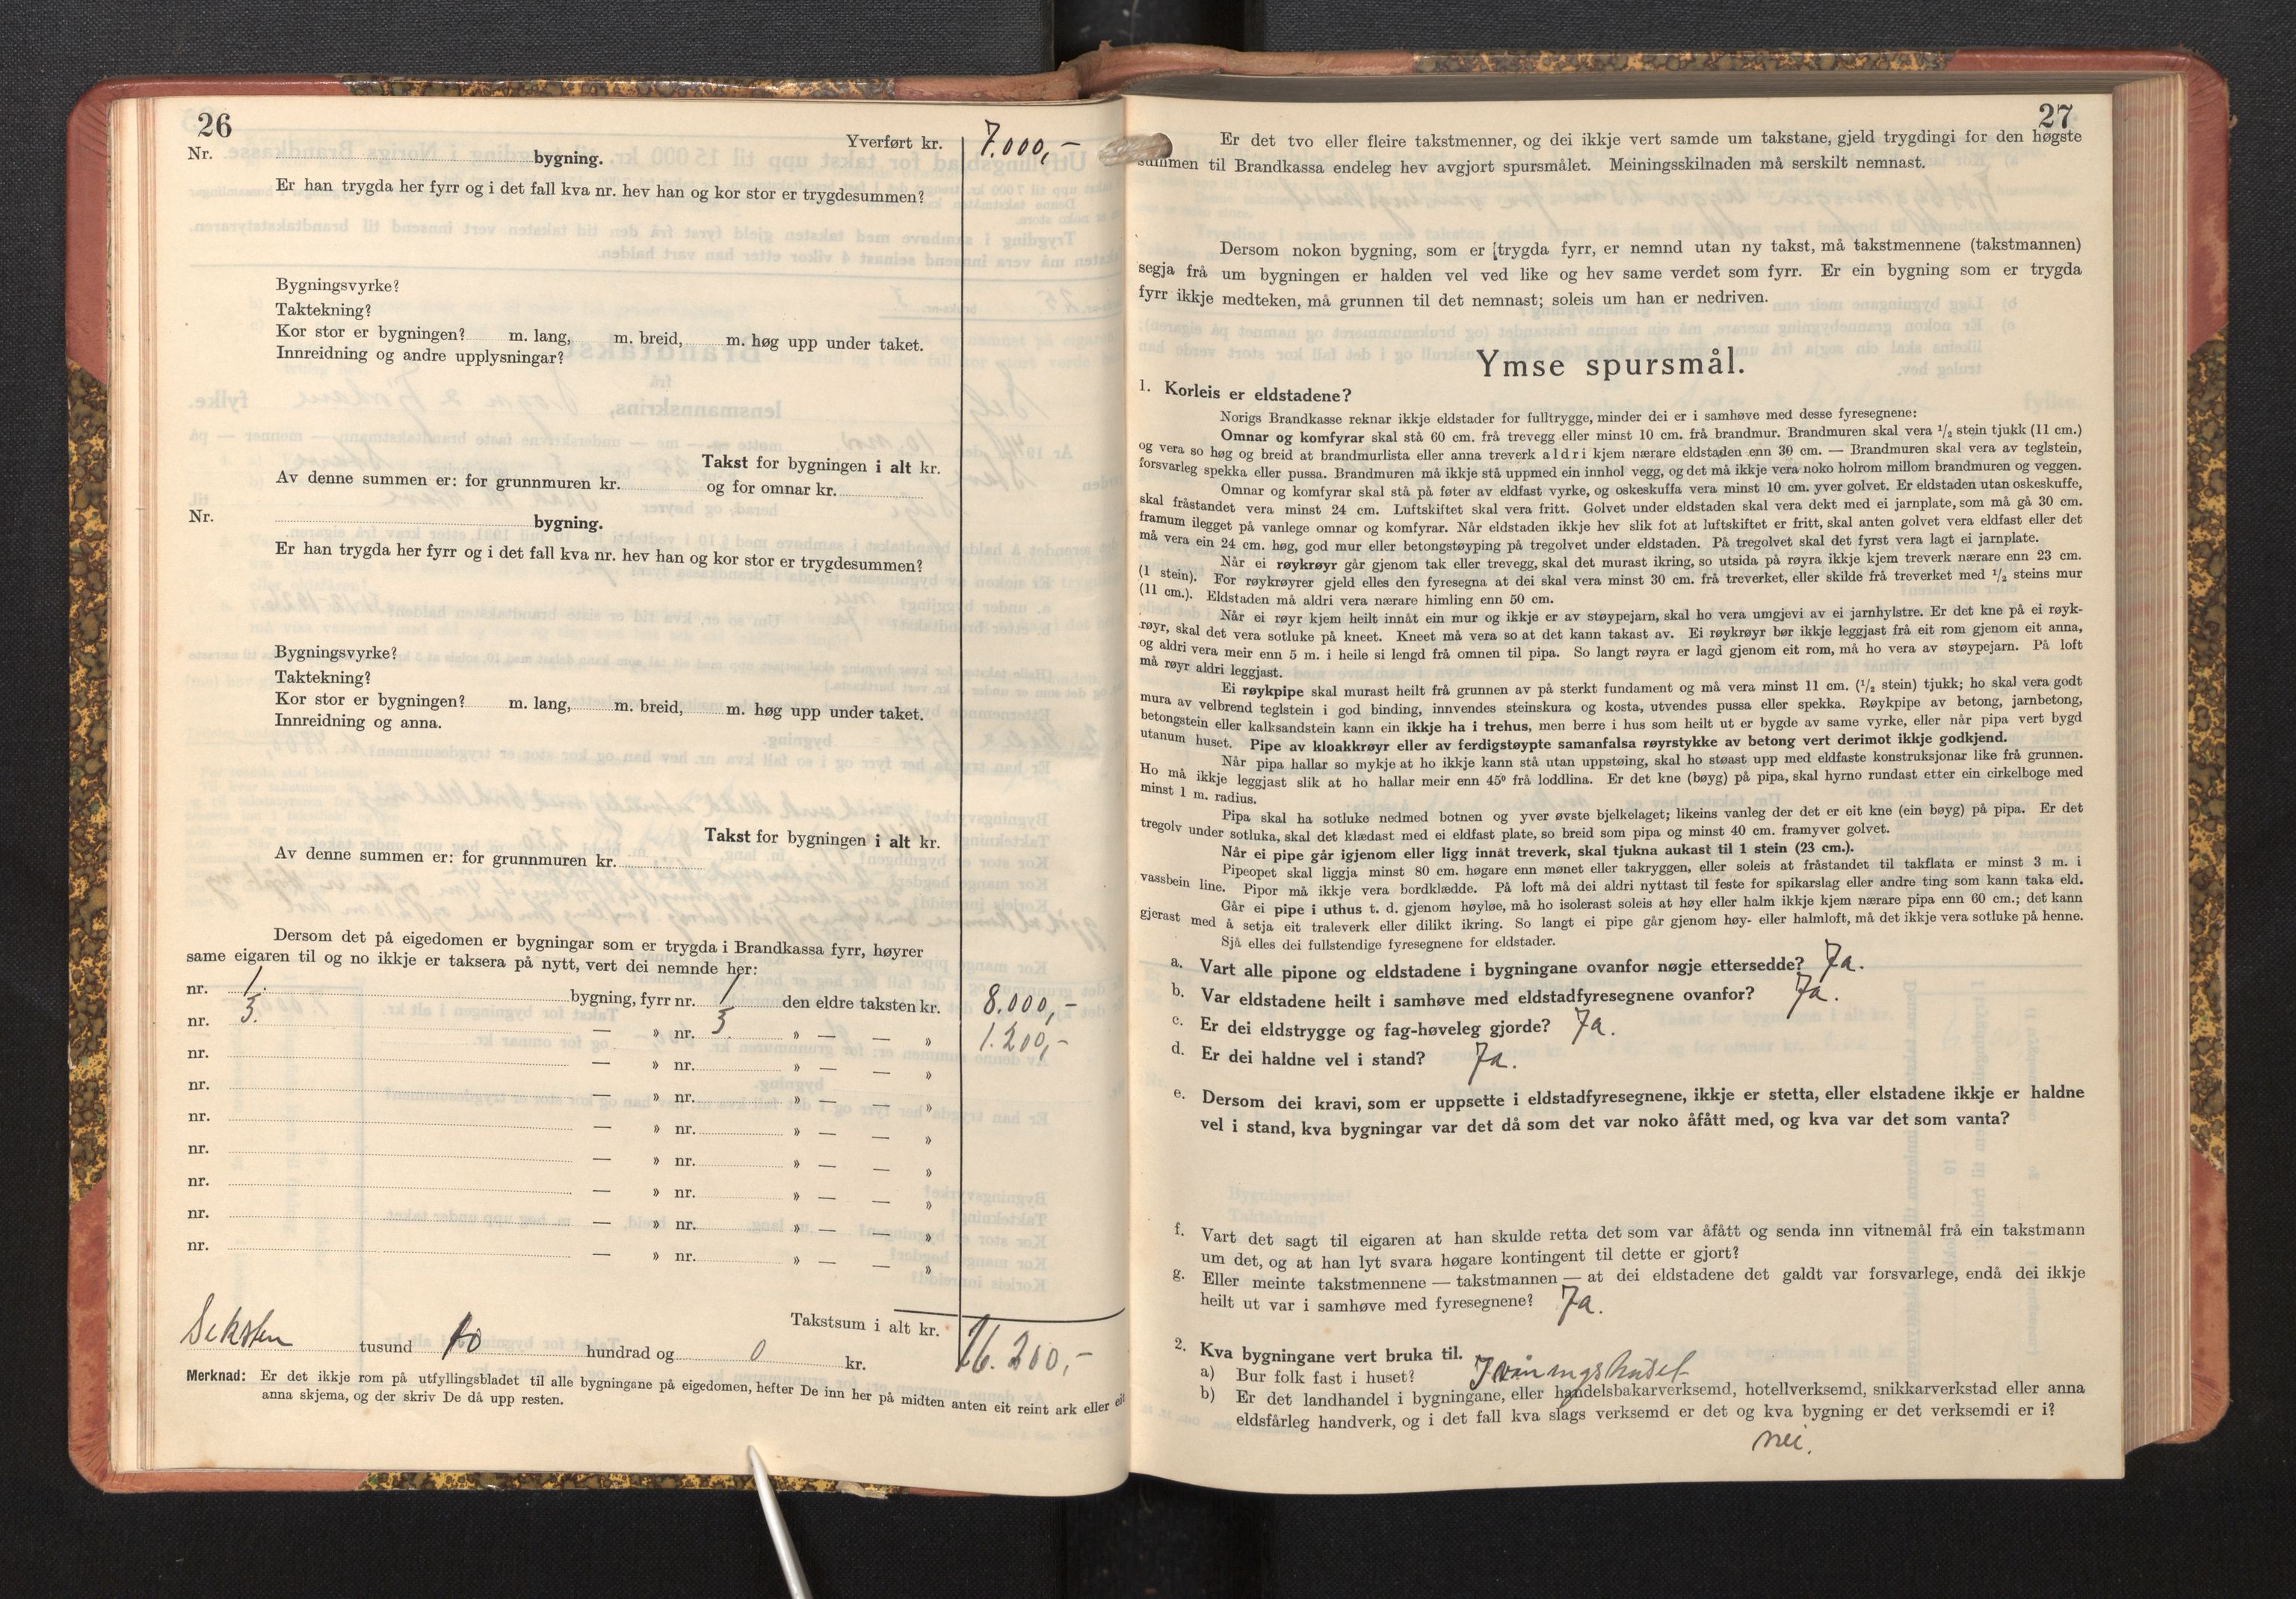 26
Yverført kr. 7.000,-
Nr. bygning.
Er han trygda her fyrr og i det fall kva nr. hev han og kor stor er trygdesummen?
Bygningsvyrke?
Taktekning?
Kor stor er bygningen? m. lang, m. breid, m. høg upp under taket.
Innreidning og andre upplysningar?
Takst for bygningen i alt kr.
Av denne summen er: for grunnmuren kr. og for omnar kr.
Nr. bygning.
Er han trygda her fyrr og i det fall kva nr. hev han og kor stor er trygdesummen?
Bygningsvyrke?
Taktekning?
Kor stor er bygningen? m. lang, m. breid, m. høg upp under taket.
Innreidning og anna.
Takst for bygningen i alt kr.
Av denne summen er: for grunnmuren kr.
Dersom det på eigedomen er bygningar som er trygda i Brandkassa fyrr, høyrer
same eigaren til og no ikkje er taksera på nytt, vert dei nemnde her:
nr. 1. bygning, fyrr nr. 1 den eldre taksten kr. 8.000,-
nr. 3. — » nr. 3 » — » 1.200,-
nr. — » nr. » — — »
nr. — » nr. » — — »
nr. — » nr. » — — »
nr. — » nr. » — — »
nr. — » nr. » — — »
nr. — » nr. » — — »
nr. — » nr. » — — »
Takstsum i alt kr. 16.200,-
Seksten tusund to hundrad og 0 kr.
Merknad: Er det ikkje rom på utfyllingsbladet til alle bygningane på eigedomen, hefter De inn her på midten anten eit reint ark eller eit
anna skjema, og der skriv De då upp resten.
27
Er det tvo eller fleire takstmenner, og dei ikkje vert samde um takstane, gjeld trygdingi for den høgste
summen til Brandkassa endeleg hev avgjort spursmålet. Meiningsskilnaden må serskilt nemnast.
Dersom nokon bygning, som er trygda fyrr, er nemnd utan ny takst, må takstmennene (takstmannen)
segja frå um bygningen er halden vel ved like og hev same verdet som fyrr. Er ein bygning som er trygda
fyrr ikkje medteken, må grunnen til det nemnast; soleis um han er nedriven.
Ymse spursmål.
1. Korleis er eldstadene?
Norigs Brandkasse reknar ikkje eldstader for fulltrygge, minder dei er i samhøve med desse fyresegnene:
Omnar og komfyrar skal stå 60 cm. frå trevegg eller minst 10 cm. frå brandmur. Brandmuren skal vera 1/2 stein tjukk (11 cm.)
og vera so høg og breid at brandmurlista eller anna treverk aldri kjem nærare eldstaden enn 30 cm. — Brandmuren skal vera av teglstein,
forsvarleg spekka eller pussa. Brandmuren må ikkje stå uppmed ein innhol vegg, og det må ikkje vera noko holrom millom brandmuren og veggen.
Omnar og komfyrar skal stå på føter av eldfast vyrke, og oskeskuffa vera minst 10 cm. yver golvet. Er eldstaden utan oskeskuffe,
skal fråstandet vera minst 24 cm. Luftskiftet skal vera fritt. Golvet under eldstaden skal vera dekt med ei jarnplate, som må gå 30 cm.
framum ilegget på vanlege omnar og komfyrar. Når eldstaden ikkje hev slik fot at luftskiftet er fritt, skal anten golvet vera eldfast eller det
må vera ein 24 cm. høg, god mur eller betongstøyping på tregolvet under eldstaden. På tregolvet skal det fyrst vera lagt ei jarnplate.
Når ei røykrøyr går gjenom tak eller trevegg, skal det murast ikring, so utsida på røyra ikkje kjem treverk nærare enn 23 cm.
(1 stein). For røykrøyrer gjeld elles den fyresegna at dei skal vera minst 30 cm. frå treverket, eller skilde frå treverket med 1/2 steins mur
(11 cm.). Eldstaden må aldri vera nærare himling enn 50 cm.
Når ei røyr kjem heilt innåt ein mur og ikkje er av støypejarn, skal ho vera umgjevi av ei jarnhylstre. Er det kne på ei røyk-
røyr, skal det vera sotluke på kneet. Kneet må vera so at det kann takast av. Ei røykrøyr bør ikkje leggjast frå eit rom gjenom eit anna,
og aldri vera meir enn 5 m. i heile si lengd frå omnen til pipa. So langt røyra er lagd gjenom eit rom, må ho vera av støypejarn. På loft
må røyr aldri leggjast.
Ei røykpipe skal murast heilt frå grunnen av på sterkt fundament og må vera minst 11 cm. (1/2 stein) tjukk; ho skal vera godt
mura av velbrend teglstein i god binding, innvendes steinskura og kosta, utvendes pussa eller spekka. Røykpipe av betong, jarnbetong,
betongstein eller kalksandstein kann ein ikkje ha i trehus, men berre i hus som heilt ut er bygde av same vyrke, eller når pipa vert bygd
utanum huset. Pipe av kloakkrøyr eller av ferdigstøypte samanfalsa røyrstykke av betong vert derimot ikkje godkjend.
Når pipa hallar so mykje at ho ikkje kann stå utan uppstøing, skal ho støast upp med eldfaste konstruksjonar like frå grunnen.
Ho må ikkje leggjast slik at ho hallar meir enn 45° frå loddlina. Er det kne (bøyg) på pipa, skal hyrno rundast etter ein cirkelboge med
minst 1 m. radius.
Pipa skal ha sotluke nedmed botnen og yver øvste bjelkelaget; likeins vanleg der det er eit kne (ein bøyg) på pipa. Er det
tregolv under sotluka, skal det klædast med ei eldfast plate, so breid som pipa og minst 40 cm. framyver golvet.
Når ei pipe går igjenom eller ligg innåt treverk, skal tjukna aukast til 1 stein (23 cm.).
Pipeopet skal liggja minst 80 cm. høgare enn mønet eller takryggen, eller soleis at fråstandet til takflata er minst 3 m. i
vassbein line. Pipor må ikkje vera bordklædde. På loft må dei aldri nyttast til feste for spikarslag eller andre ting som kann taka eld.
Går ei pipe i uthus t. d. gjenom høyløe, må ho isolerast soleis at høy eller halm ikkje kjem nærare pipa enn 60 cm.; det kann
gjerast med å setja eit traleverk eller dilikt ikring. So langt ei pipe går gjenom høy- eller halmloft, må det ikkje vera sotluke på henne.
Sjå elles dei fullstendige fyresegnene for eldstader.
a. Vart alle pipone og eldstadene i bygningane ovanfor nøgje ettersedde? Ja.
b. Var eldstadene heilt i samhøve med eldstadfyresegnene ovanfor? Ja.
c. Er dei eldstrygge og fag-høveleg gjorde? Ja.
d. Er dei haldne vel i stand? Ja.
e. Dersom dei kravi, som er uppsette i eldstadfyresegnene, ikkje er stetta, eller elstadene ikkje er haldne
vel i stand, kva bygningar var det då som det var noko åfått med, og kva var det som vanta?
f. Vart det sagt til eigaren at han skulde retta det som var åfått og senda inn vitnemål frå ein takstmann
um det, og at han lyt svara høgare kontingent til dette er gjort?
g. Eller meinte takstmennene — takstmannen — at dei eldstadene det galdt var forsvarlege, endå dei ikkje
heilt ut var i samhøve med fyresegnene? Ja.
2. Kva bygningane vert bruka til.
a) Bur folk fast i huset? I våningshuset
b) Er det landhandel i bygningane, eller handelsbakarverksemd, hotellverksemd, snikkarverkstad eller anna
eldsfårleg handverk, og i det fall kva slags verksemd er det og kva bygning er det verksemdi er i?
nei.